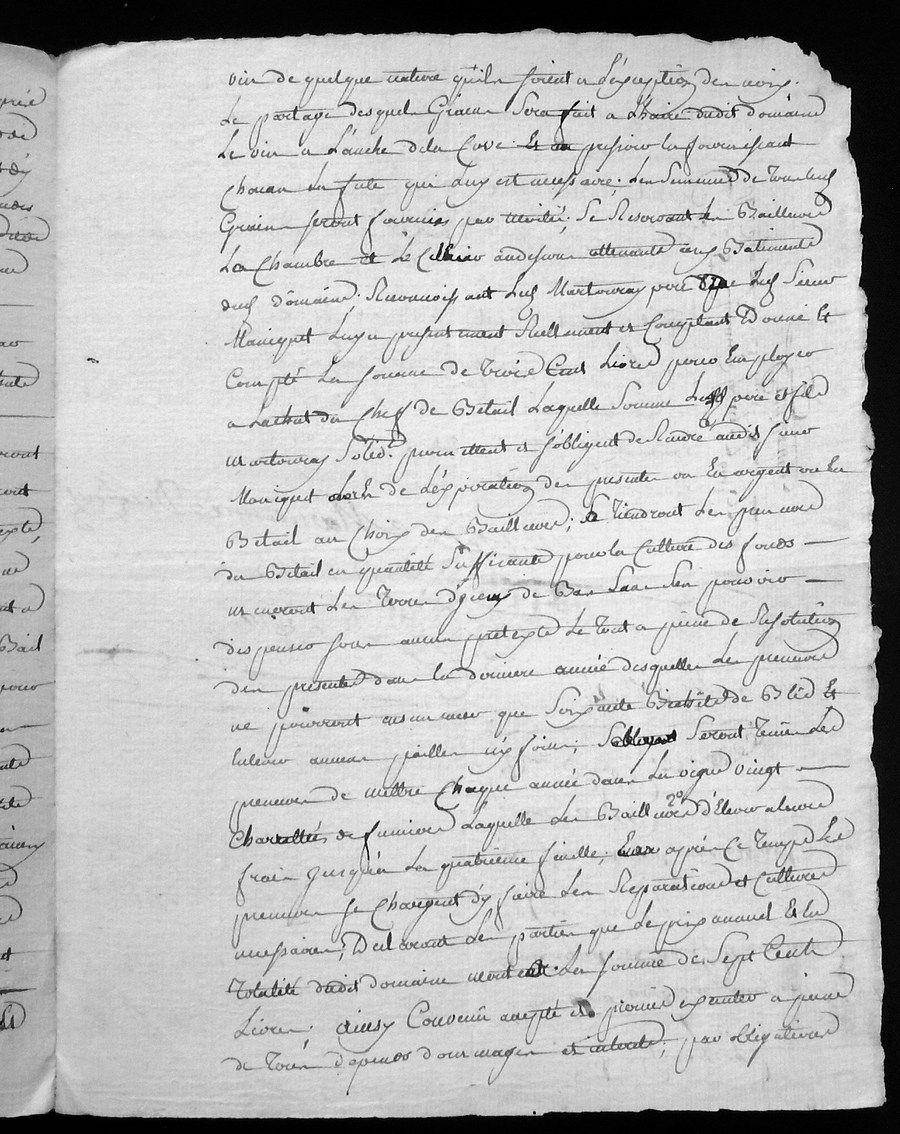 vin de quelque nature quils soient a L'exception des noix.
Le partage desquels Grains Sera fait a L'haire dudit domaine
Le vin a L'anche dela Cuve Et au pressoir la fournissant
Chacun La futé qui luy est necessaire. Les Semences de Tous lesd
Grains seront fournies par moitié; Se Reservant Les Bailleurs
La Chambre et Le Cellier audessous attenants aux Batiments
dud domaine. Reconnoissant Led Martouray pere que Led Sieur
Maniquet Luy a presentement Reellement et Comptant Donné Et
Compté La somme de Trois Cent Livres pour Employer
a L'achat du Cheff de Betail Laquelle Somme Lesd pere et fils
Martouray Solid.t promettent et s'obligent de Rendre audit sieur
Maniquet de L'expiration des presentes ou En argent ou En
Betail au Choix des Bailleurs; Tiendront Les preneurs
du Betail en quantité Suffisante pour la Culture des fonds
Les Terres de Bas Sans Sen pouvoir
dispenser sous aucun pretexte Le Tout a peine de Resolution
des presentes dans la derniere année desquelles Les preneurs
ne pourront ensemencer que Soixante de Bled Et
Enlever aucunes pailles ny foins; Seront Tenus Les
preneurs de mettre Chaque année dans La vigne vingt
Charrettées de fumier Laquelle Les Bailleurs d'Elever a leurs
frais jusqu'en La quatrieme feuille; Et apres Ce Temps Les
preneurs se Chargent d'y faire Les Reparations et Cultures
necessaires; Declarant Les parties que Le prix annuel Et La
Totalité dudit domaine La somme de Sept Cents
Livres; ainsy Convenu accepté et promis executer a peine
de Tous depends dommages et interets; par obligations